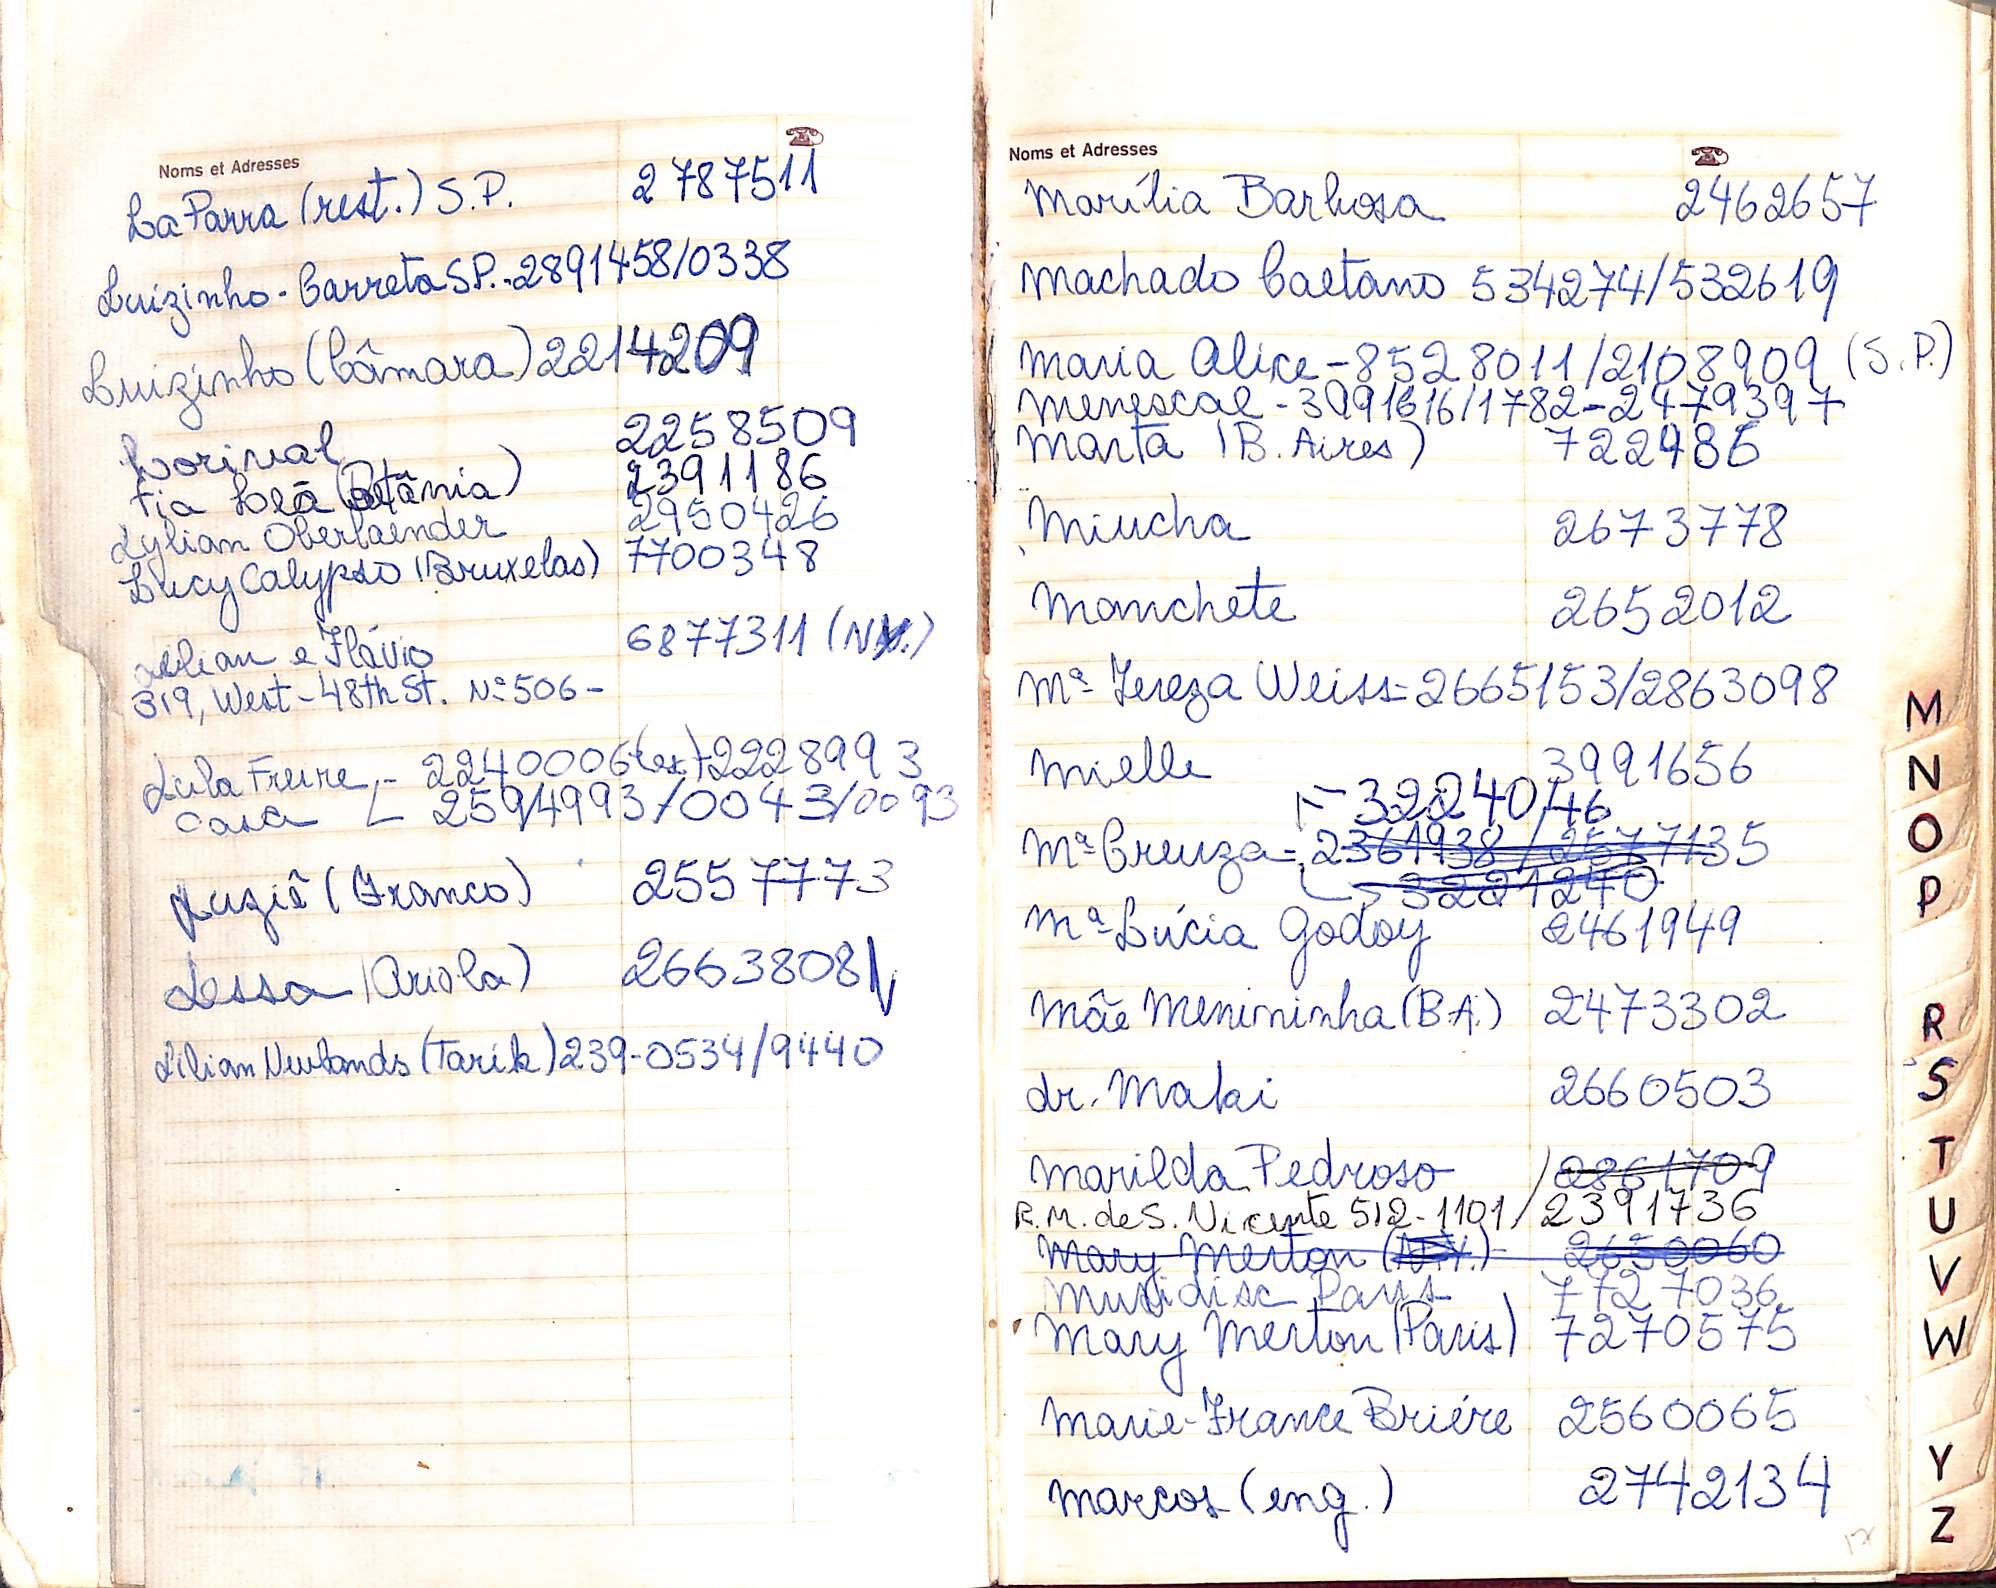 Noms et Adresses
La Parra (rest.) S.P. 2787511
Luizinho - Carreta SP. - 2891458/0338
Luizinho (Câmara) 2214209
Lorival 2258509
Tia Léa (Betânia) 2391186
Lylian Oberlaender 2950426
Lucy Calypso (Bruxelas) 7700348
Lilian e Flávio 6877311 (NY.)
319, West - 48th St. Nº 506 -
Lula Freire - 2240006 (es.) 2228993
casa 2594993/0043/0093
Luziê (Franco) 2557773
Lessa (Ariola) 2663808
Lilian Newlands (Tarik) 239-0534/9440
Noms et Adresses
Marília Barbosa 2462657
Machado Caetano 534274/532619
Maria Alice - 8528011/2108909 (S.P.)
Menescal - 3991616/1782 - 2479397
Marta (B. Aires) 722486
Miucha 2673778
Manchete 2652012
Mª Tereza Weiss - 2665153/2863098
Mielle 3991656
32240/46
Mª Creuza - 2361938/2577135
3221240
Mª Lúcia Godoy 2461949
Mãe Menininha (BA.) 2473302
dr. Maki 2660503
Marilda Pedroso 2861709
R. M. de S. Vicente 512-1101/2391736
Mary Merton (N.Y.) - 2650060
Musidisc Paris 7727036
Mary Merton (Paris) 7270575
Marie-France Briére 2560065
Marcos (eng.) 2742134
M
N
O
P
R
S
T
U
V
W
Y
Z